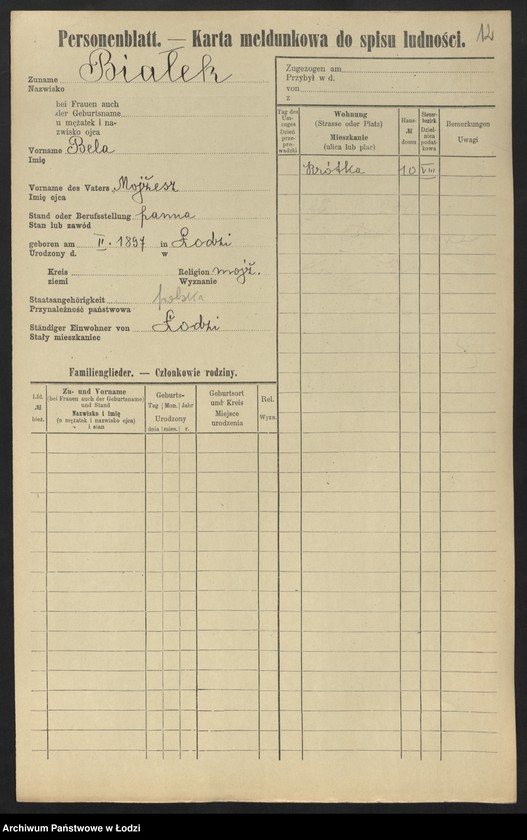 12
Personenblatt. — Karta meldunkowa do spisu ludności.
Zuname Białek
Nazwisko
bei Frauen auch
der Geburtsname
u mężatek i na-
zwisko ojca
Vorname Bela
Imię
Vorname des Vaters Mojżesz
Imię ojca
Stand oder Berufsstellung panna
Stan lub zawód
geboren am II. 1897 in Łodzi
Urodzony d. w
Kreis Religion mojż.
ziemi Wyznanie
Staatsangehörigkeit polska
Przynależność państwowa
Ständiger Einwohner von Łodzi
Stały mieszkaniec
Zugezogen am
Przybył w d.
von
z
Tag des Um-zuges Dzień prze-pro-wadzki
Wohnung
(Strasse oder Platz)
Mieszkanie
(ulica lub plac)
Haus-
№
domu
Steuer-bezirk Dziel-nica podat-kowa
Bemerkungen
Uwagi
Krótka 10 VIII
Familienglieder. — Członkowie rodziny.
Lfd.
№
bież.
Zu- und Vorname
(bei Frauen auch der Geburtsname)
und Stand
Nazwisko i imię
(u mężatek i nazwisko ojca)
i stan
Geburts-
Tag Mon. Jahr
Urodzony
dnia mies. r.
Geburtsort
und Kreis
Miejsce
urodzenia
Rel.
Wyzn.
Archiwum Państwowe w Łodzi